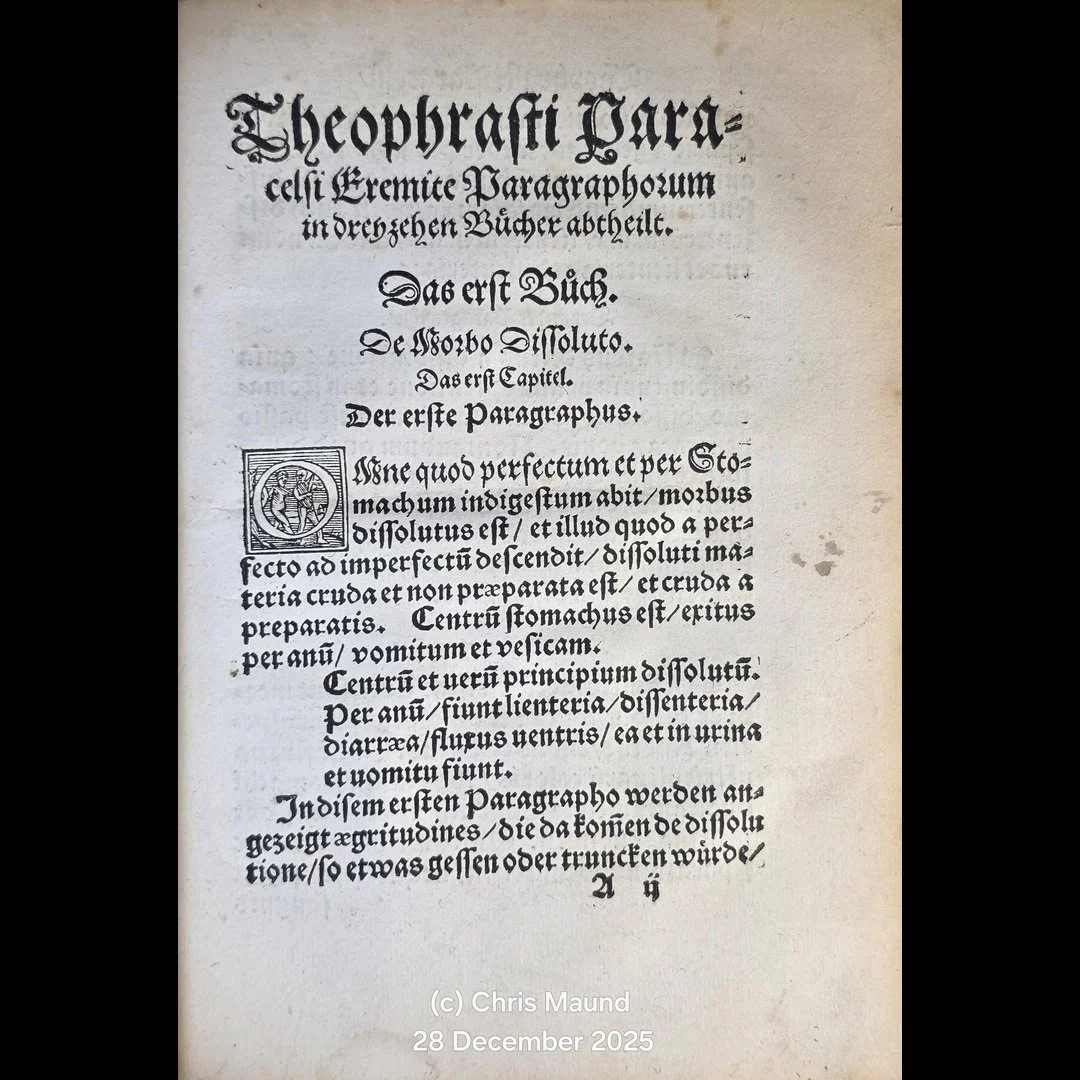 Theophrasti Para⸗
celsi Eremite Paragraphorum
in dreyzehen Bücher abtheilt.
Das erst Bůch.
De Morbo Dissoluto.
Das erst Capitel.
Der erste Paragraphus.
OMne quod perfectum et per Sto⸗
machum indigestum abit/morbus
dissolutus est/ et illud quod a per⸗
fecto ad imperfectū descendit/ dissoluti ma⸗
teria cruda et non præparata est/ et cruda a
preparatis. Centrū stomachus est/exitus
per anū/ vomitum et vesicam.
Centrū et uerū principium dissolutū.
Per anū/fiunt lienteria/dissenteria/
diarræa/fluxus uentris/ ea et in urina
et uomitu fiunt.
In disem ersten Paragrapho werden an⸗
gezeigt ægritudines/die da kom̃en de dissolu
tione/so etwas gessen oder truncken würde/
A ij
(c) Chris Maund
28 December 2025